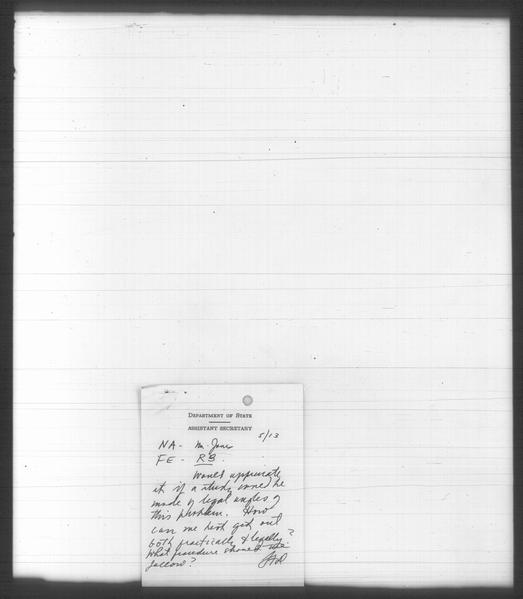 DEPARTMENT OF STATE
ASSISTANT SECRETARY
5/13
NA - Mr. Jones
FE - RB.
Would appreciate
it if a study could be
made of legal angles of
this problem. How
can we best get out
both practically & legally?
What procedure should we
follow?